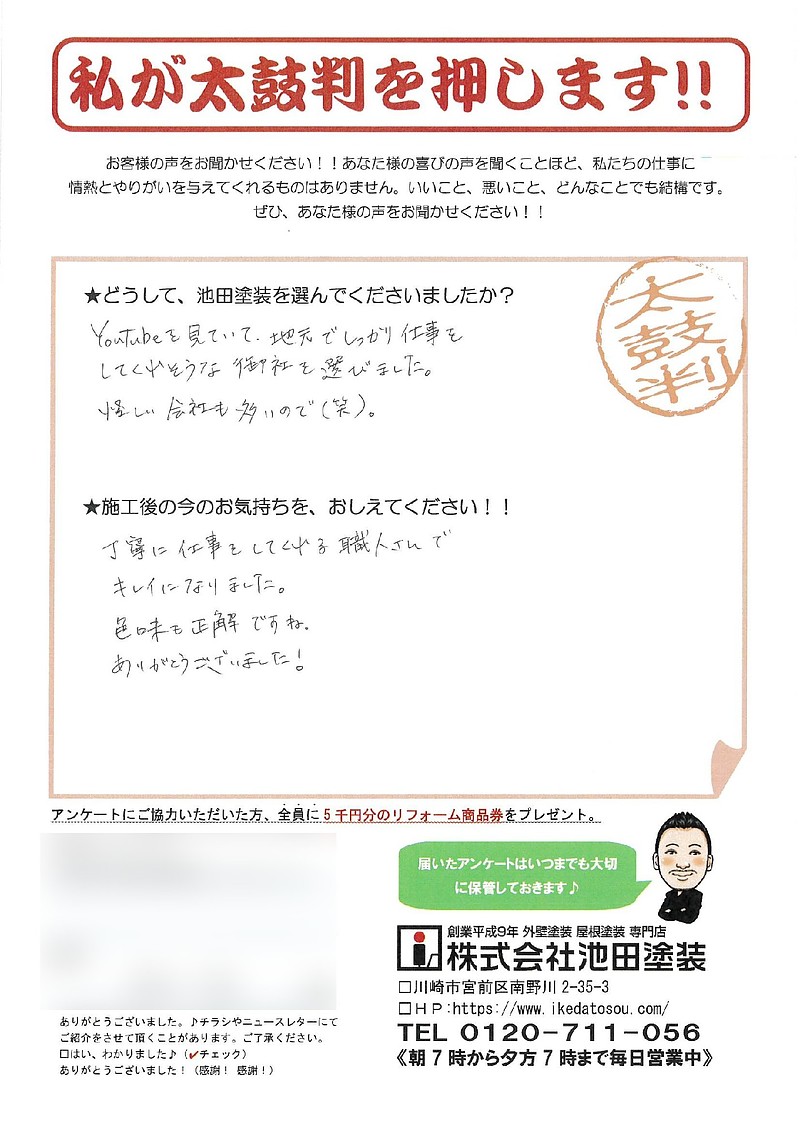 私が太鼓判を押します!!
お客様の声をお聞かせください！！あなた様の喜びの声を聞くことほど、私たちの仕事に
情熱とやりがいを与えてくれるものはありません。いいこと、悪いこと、どんなことでも結構です。
ぜひ、あなた様の声をお聞かせください！！
太鼓判
★どうして、池田塗装を選んでくださいましたか？
YouTubeを見ていて、地元でしっかり仕事を
してくれそうな御社を選びました。
怪しい会社も多いので（笑）。
★施工後の今のお気持ちを、おしえてください！！
丁寧に仕事をしてくれる職人さんで
キレイになりました。
色味も正解ですね。
ありがとうございました！
アンケートにご協力いただいた方、全員に５千円分のリフォーム商品券をプレゼント。
届いたアンケートはいつまでも大切
に保管しておきます♪
創業平成9年 外壁塗装 屋根塗装 専門店
株式会社池田塗装
□川崎市宮前区南野川2-35-3
□ＨＰ:https://www.ikedatosou.com/
TEL 0120-711-056
《朝７時から夕方７時まで毎日営業中》
ありがとうございました。♪チラシやニュースレターにて
ご紹介をさせて頂くことがあります。ご了承ください。
□はい、わかりました♪（✔チェック）
ありがとうございました！（感謝！感謝！）